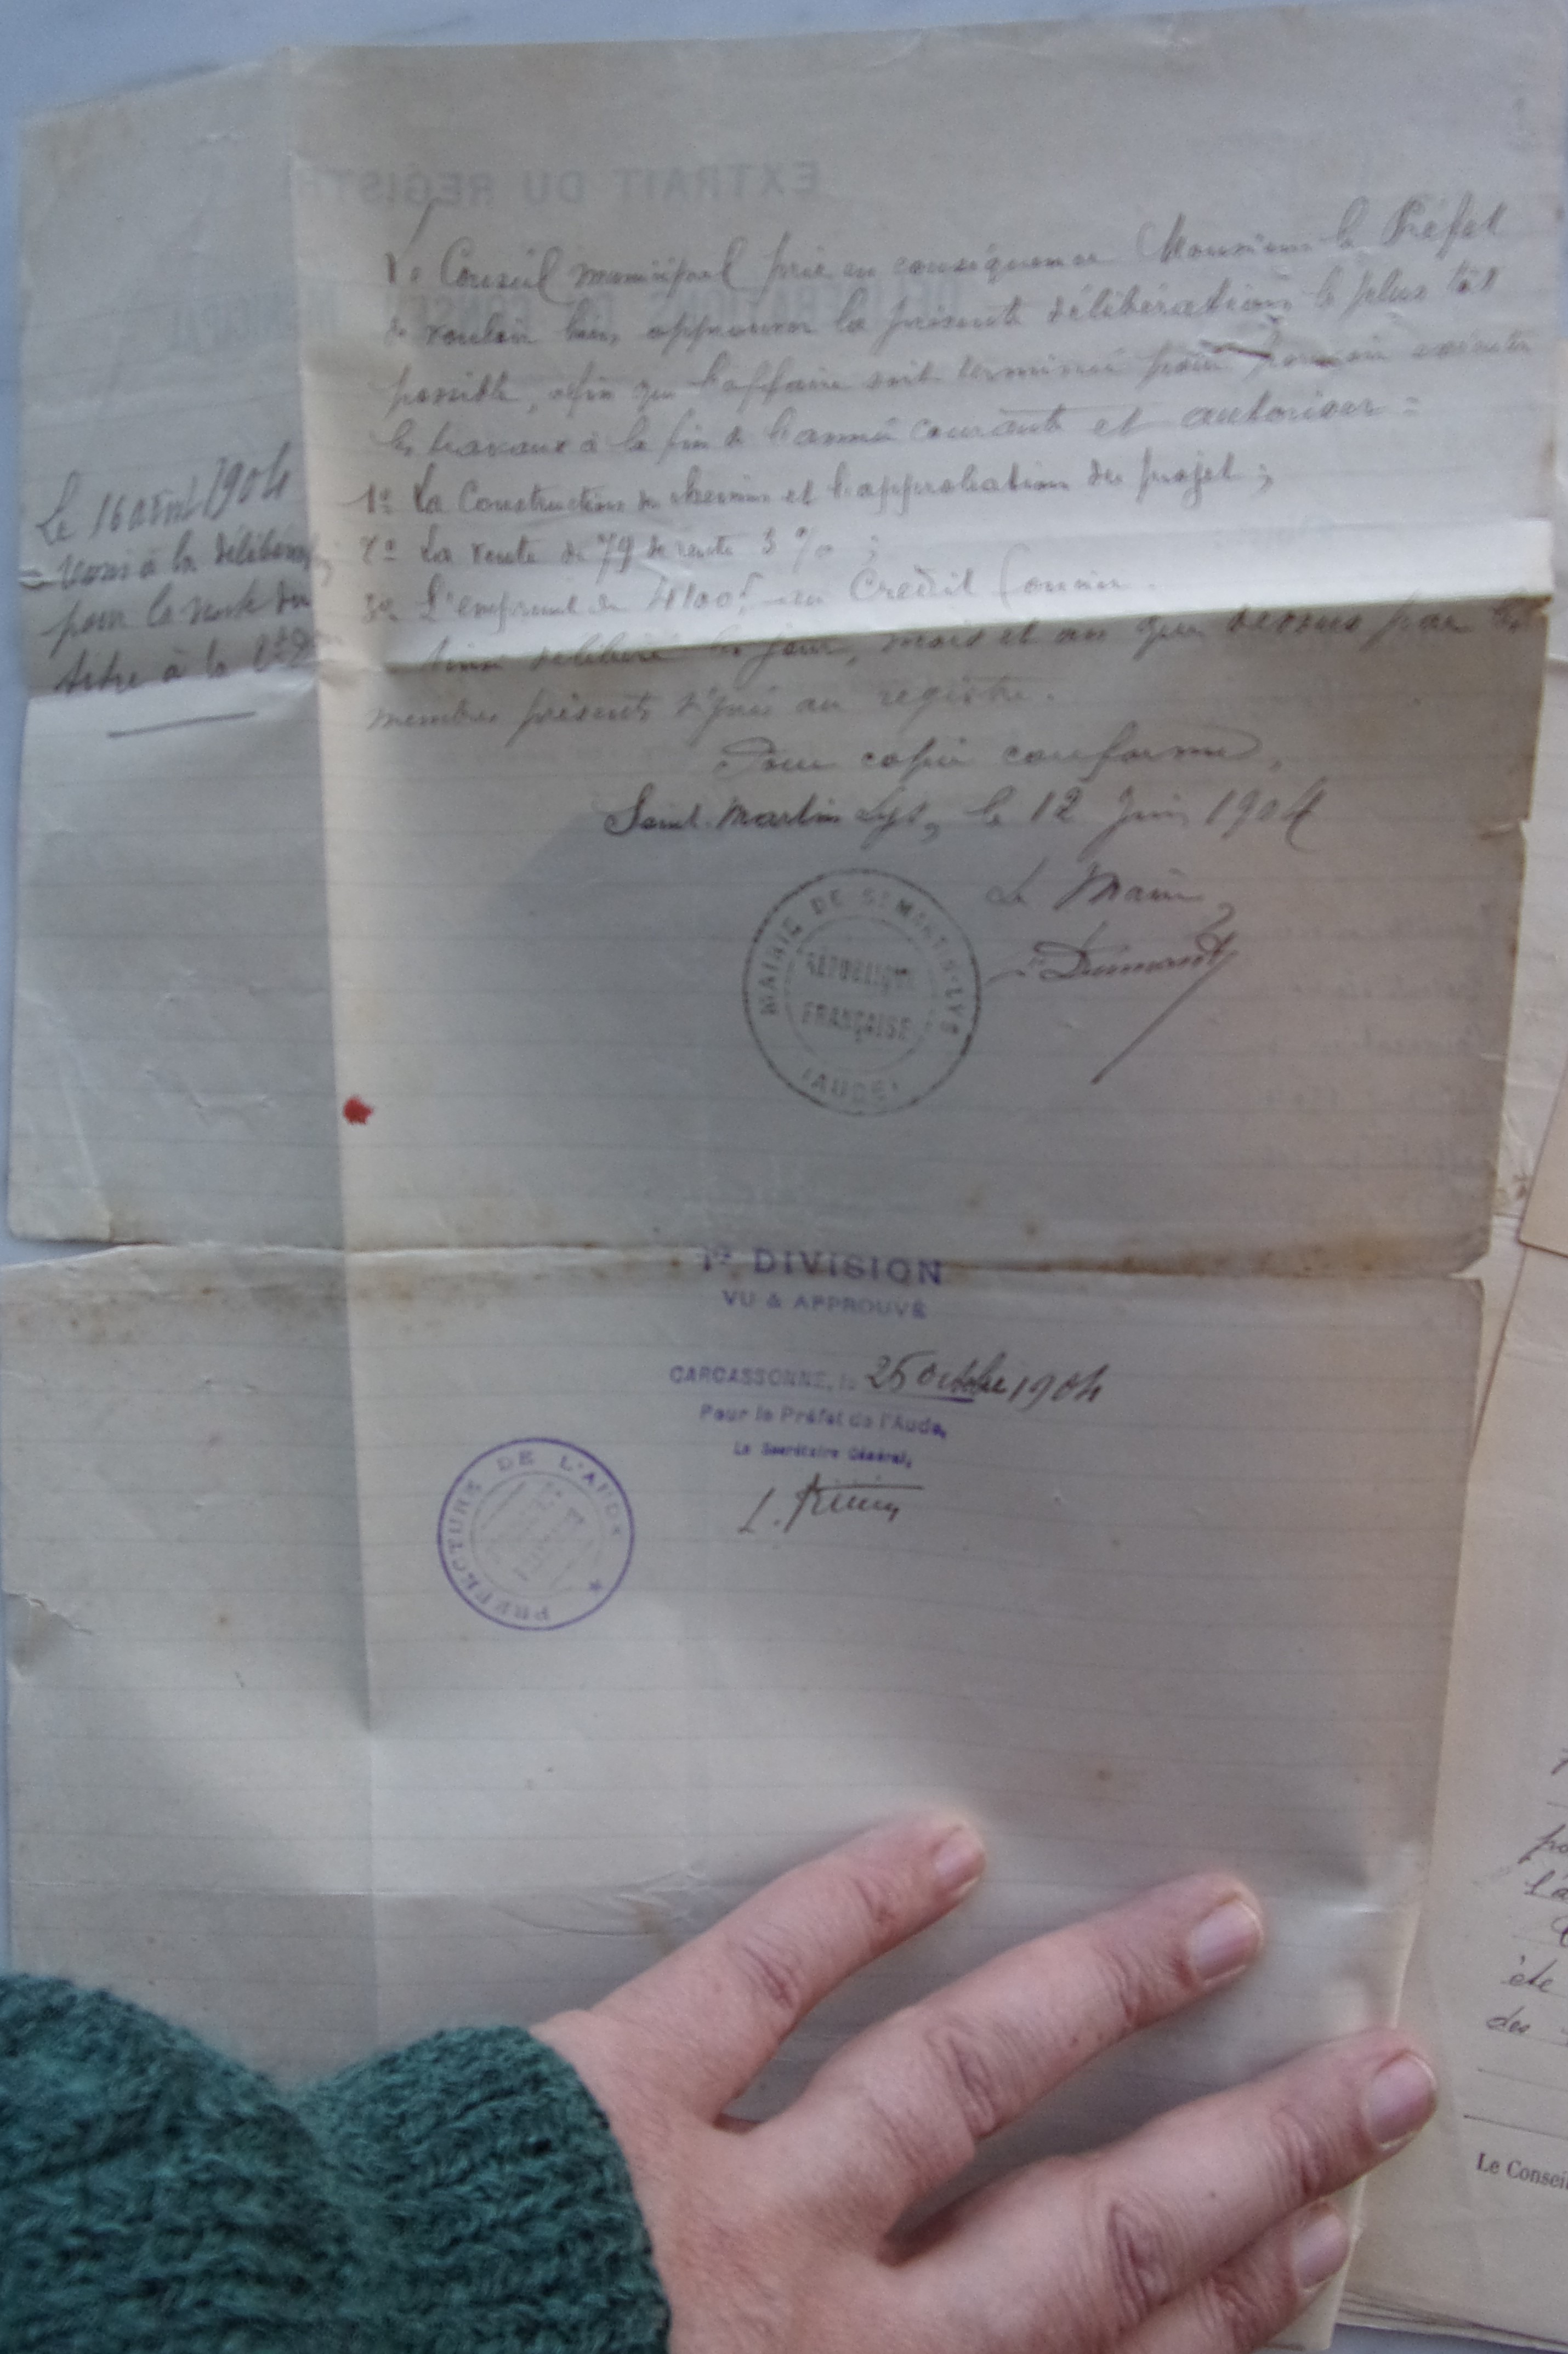 Le Conseil municipal prie en conséquence Monsieur le Préfet
de vouloir bien approuver la présente délibération le plus tôt
possible, afin que l'affaire soit terminée pour pouvoir exécuter
les travaux à la fin de l'année courante et autoriser :
1º La Construction du chemin et l'approbation du projet ;
2º La vente de 79 de rente 3 % ;
3º L'emprunt de 4100f au Crédit foncier.
Ainsi délibéré les jour, mois et an que dessus par les
membres présents signés au registre.
Pour copie conforme,
Saint-Martin Lys, le 12 Juin 1904
Le Maire,
MAIRIE DE ST MARTIN-LYS
RÉPUBLIQUE
FRANÇAISE
(AUDE)
Le 16 1904
à la
pour la vente du
titre à la
1re DIVISION
VU & APPROUVÉ
CARCASSONNE, le 25 octobre 1904
Pour le Préfet de l'Aude,
Le Secrétaire Général,
PRÉFECTURE DE L'AUDE
EXTRAIT DU REGISTRE
po
l'a
été
des
Le Conseil